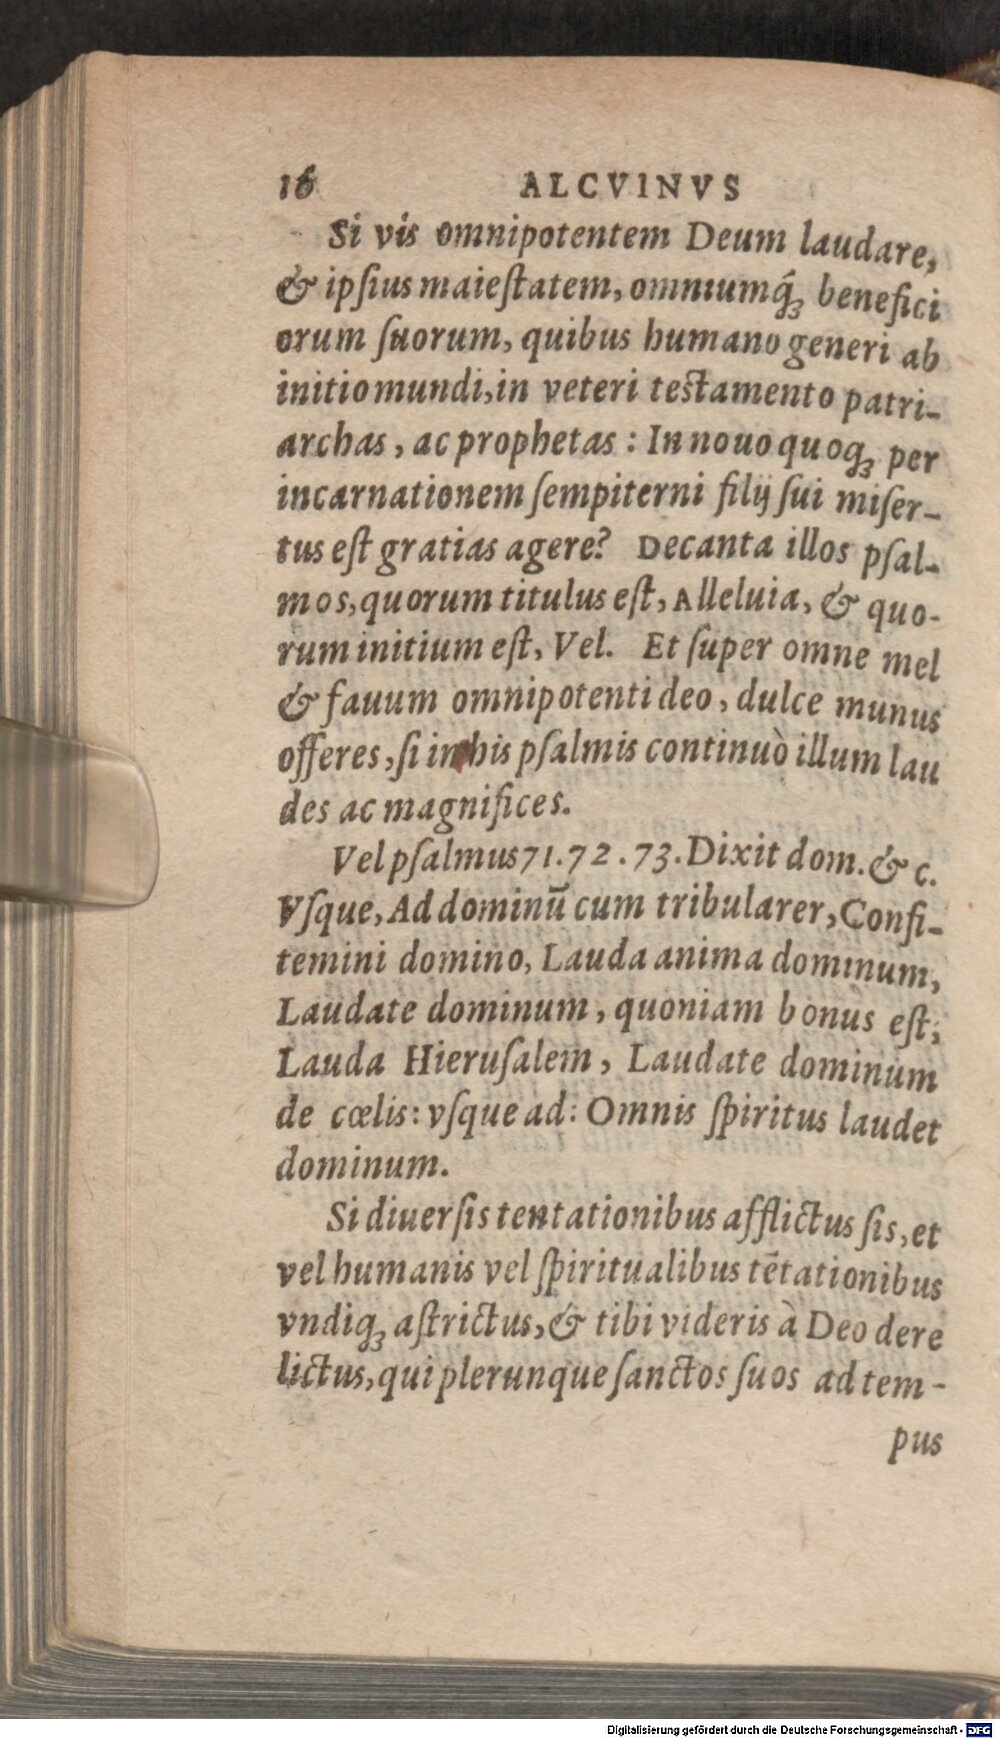 16 ALCVINVS
Si vis omnipotentem Deum laudare,
& ipſius maieſtatem, omniumq́ꝫ benefici
orum ſuorum, quibus humano generi ab
initio mundi, in veteri teſtamento patri-
archas, ac prophetas : In nouo quoqꝫ per
incarnationem ſempiterni filij ſui miſer-
tus eſt gratias agere? Decanta illos pſal-
mos, quorum titulus eſt, Alleluia, & quo-
rum initium eſt, Vel. Et ſuper omne mel
& fauum omnipotenti deo, dulce munus
offeres, ſi in his pſalmis continuò illum lau
des ac magnifices.
Vel pſalmus 71. 72. 73. Dixit dom. & c.
Vſque, Ad dominũ cum tribularer, Confi-
temini domino, Lauda anima dominum,
Laudate dominum, quoniam bonus eſt,
Lauda Hieruſalem, Laudate dominum
de cœlis: vſque ad: Omnis ſpiritus laudet
dominum.
Si diuerſis tentationibus afflictus ſis, et
vel humanis vel ſpiritualibus tẽtationibus
vndiqꝫ aſtrictus, & tibi videris à Deo dere
lictus, qui plerunque ſanctos ſuos ad tem-
pus
Digitalisierung gefördert durch die Deutsche Forschungsgemeinschaft - DFG